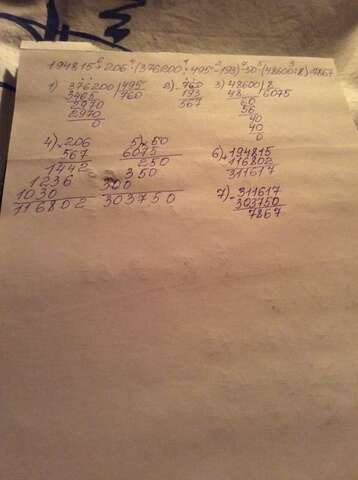 194815+206·(376200:495-193)-50·(48600:8)=7867
1) 376200 | 495 2) -760 3) 48600 | 8
3465 | 760 193 48 | 6075
2970 567 60
2970 56
0 40
40
0
4) ×206 5) ×50 6) +194815
567 6075 116802
1442 250 311617
1236 350
1030 300 7) -311617
116802 303750 303750
7867